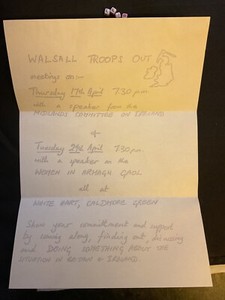 WALSALL TROOPS OUT
meetings on :-
Thursday 17th April 7.30 p.m.
with a speaker from the
MIDLANDS COMMITTEE ON IRELAND
+
Tuesday 29th April 7.30 p.m.
with a speaker on the
WOMEN IN ARMAGH GAOL
all at
WHITE HART, CALDMORE GREEN
Show your commitment and support
by coming along, finding out, discussing
and DOING SOMETHING ABOUT THE
SITUATION IN IRELAND